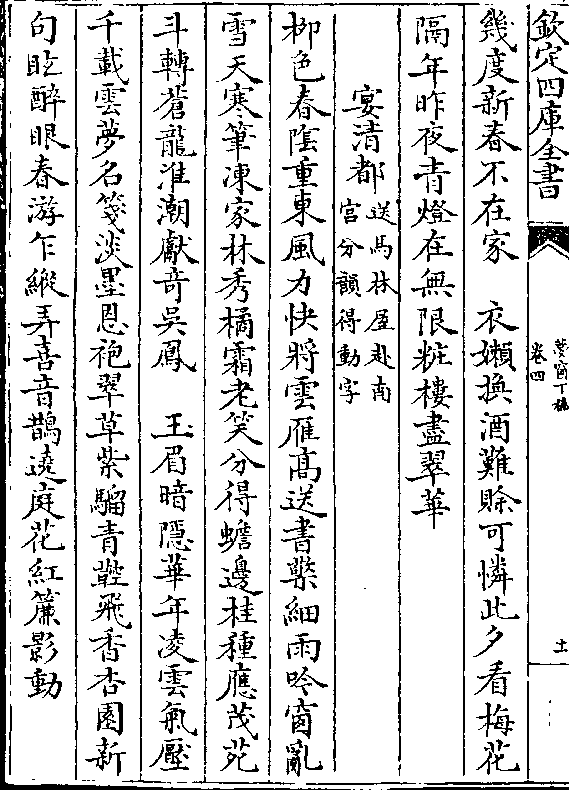 欽定四庫全書
夢窗丁稿
卷四
十一
幾度新春不在家　衣嬾換酒難賒可憐此夕看梅花
隔年昨夜青燈在無限粧樓盡翠華
宴清都
送馬林屋赴南
宫分韻得動字
柳色春陰重東風力快將雲雁髙送書檠細雨吟窗亂
雪天寒筆凍家林秀橘霜老笑分得蟾邊桂種應茂苑
斗轉蒼龍淮潮獻竒吳鳳　玉眉暗隱華年凌雲氣壓
千載雲夢名箋淡墨恩袍翠草紫騮青鞚飛香杏園新
句眩醉眼春游乍縱弄喜音鵲遶庭花紅簾影動